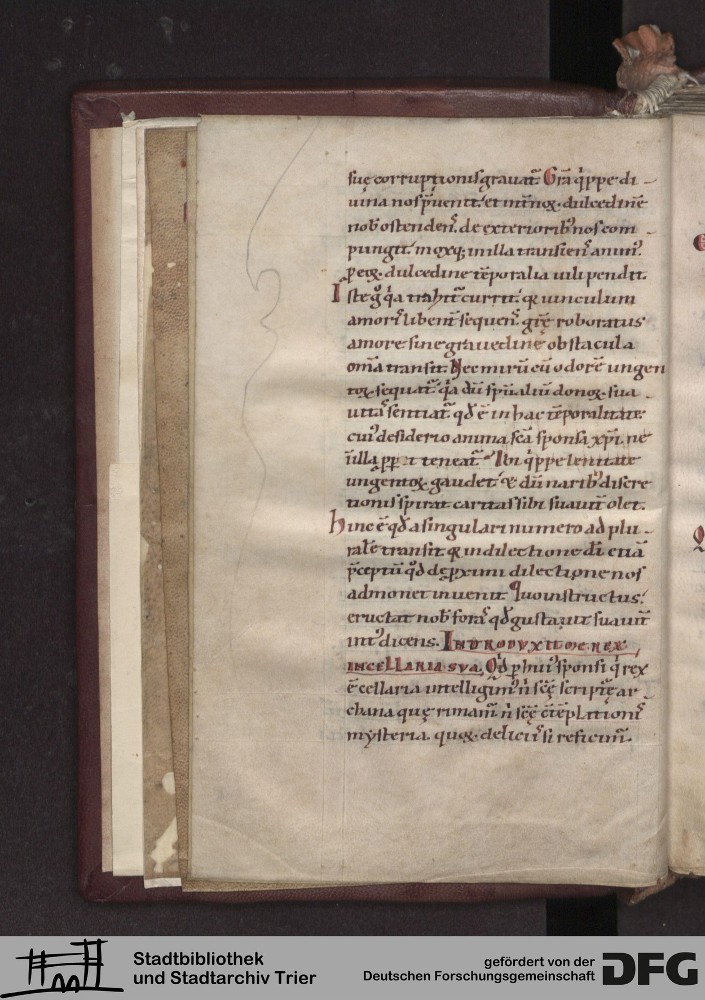 suę corruptionis gravat᷑. Gr̄a q̇ppe di-
uina nos p̄uenit. et int̄nox. dulcedinē
nob᷒ ostenden᷒. de exteriorib᷒ nos com-
pungit. moxq; in illa transien᷒ animū.
p eaꝝ. dulcedine tēporalia uili pendit.
Iste g͛ q̇a trahit᷑ currit. qr uinculum
amor᷒ libent̄ sequen᷒. grē roboratus
amore sine gravedine obstacula
om̄a transit. Nec mirū cū odorē ungen
toꝝ. sequat᷑. q̇a dū sp̄ualiū donoꝝ. sua-
uitatē sentiat᷑. qd̄ ē in hac tēporalitate
cui᷒ desiderio anima, sc̄a sponsa xp̄i. ne
teneat᷑. Ibi q̇ppe lenitate
ungentoꝝ. gaudet. & dū narib᷒ discre
tionis spirat caritas sibi suauit̄ olet.
hinc ē qd̄ a singulari numero ad plu-
ralē transit. qr in dilectione dī etiā
p̄ceptū qd̄ de ꝓximi dilectione nos
admonet inuenit. Quo instructus.
eructat nob᷒ foras qd̄ gustauit suauit̄
int᷒ dicens. INTRODUXIT ME REX
IN CELLARIA SUA. Qd̄ p hui᷒ sponsi q̇ rex
ē cellaria intelligim᷒ n̄ scē scripturę ar-
chana quę rimam᷒ n̄ scē c̄tēplationis
mysteria. quoꝝ. deliciis si reficim᷒.
Stadtbibliothek
und Stadtarchiv Trier
gefördert von der
Deutschen Forschungsgemeinschaft
DFG